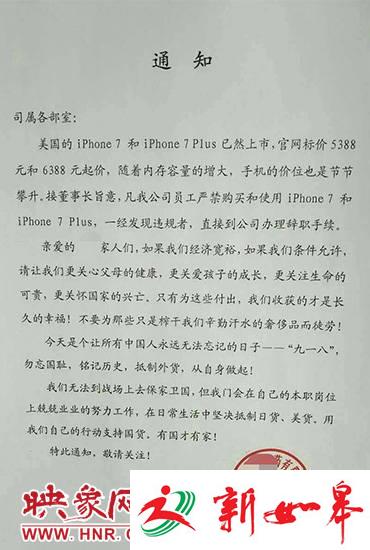 通 知
司属各部室：
美国的 iPhone 7 和 iPhone 7 Plus 已然上市，官网标价 5388
元和 6388 元起价，随着内存容量的增大，手机的价位也是节节
攀升。接董事长旨意，凡我公司员工严禁购买和使用 iPhone 7 和
iPhone 7 Plus，一经发现违规者，直接到公司办理辞职手续。
亲爱的 家人们，如果我们经济宽裕，如果我们条件允许，
请让我们更关心父母的健康，更关爱孩子的成长，更关注生命的
可贵，更关怀国家的兴亡。只有为这些付出，我们收获的才是长
久的幸福！不要为那些只是榨干我们辛勤汗水的奢侈品而徒劳！
今天是个让所有中国人永远无法忘记的日子——“九一八”，
勿忘国耻，铭记历史，抵制外货，从自身做起！
我们无法到战场上去保家卫国，但我们会在自己的本职岗位
上兢兢业业的努力工作，在日常生活中坚决抵制日货、美货。用
我们自己的行动支持国货。有国才有家！
特此通知，敬请关注！
映象网
WWW.HNR.C
新如皋